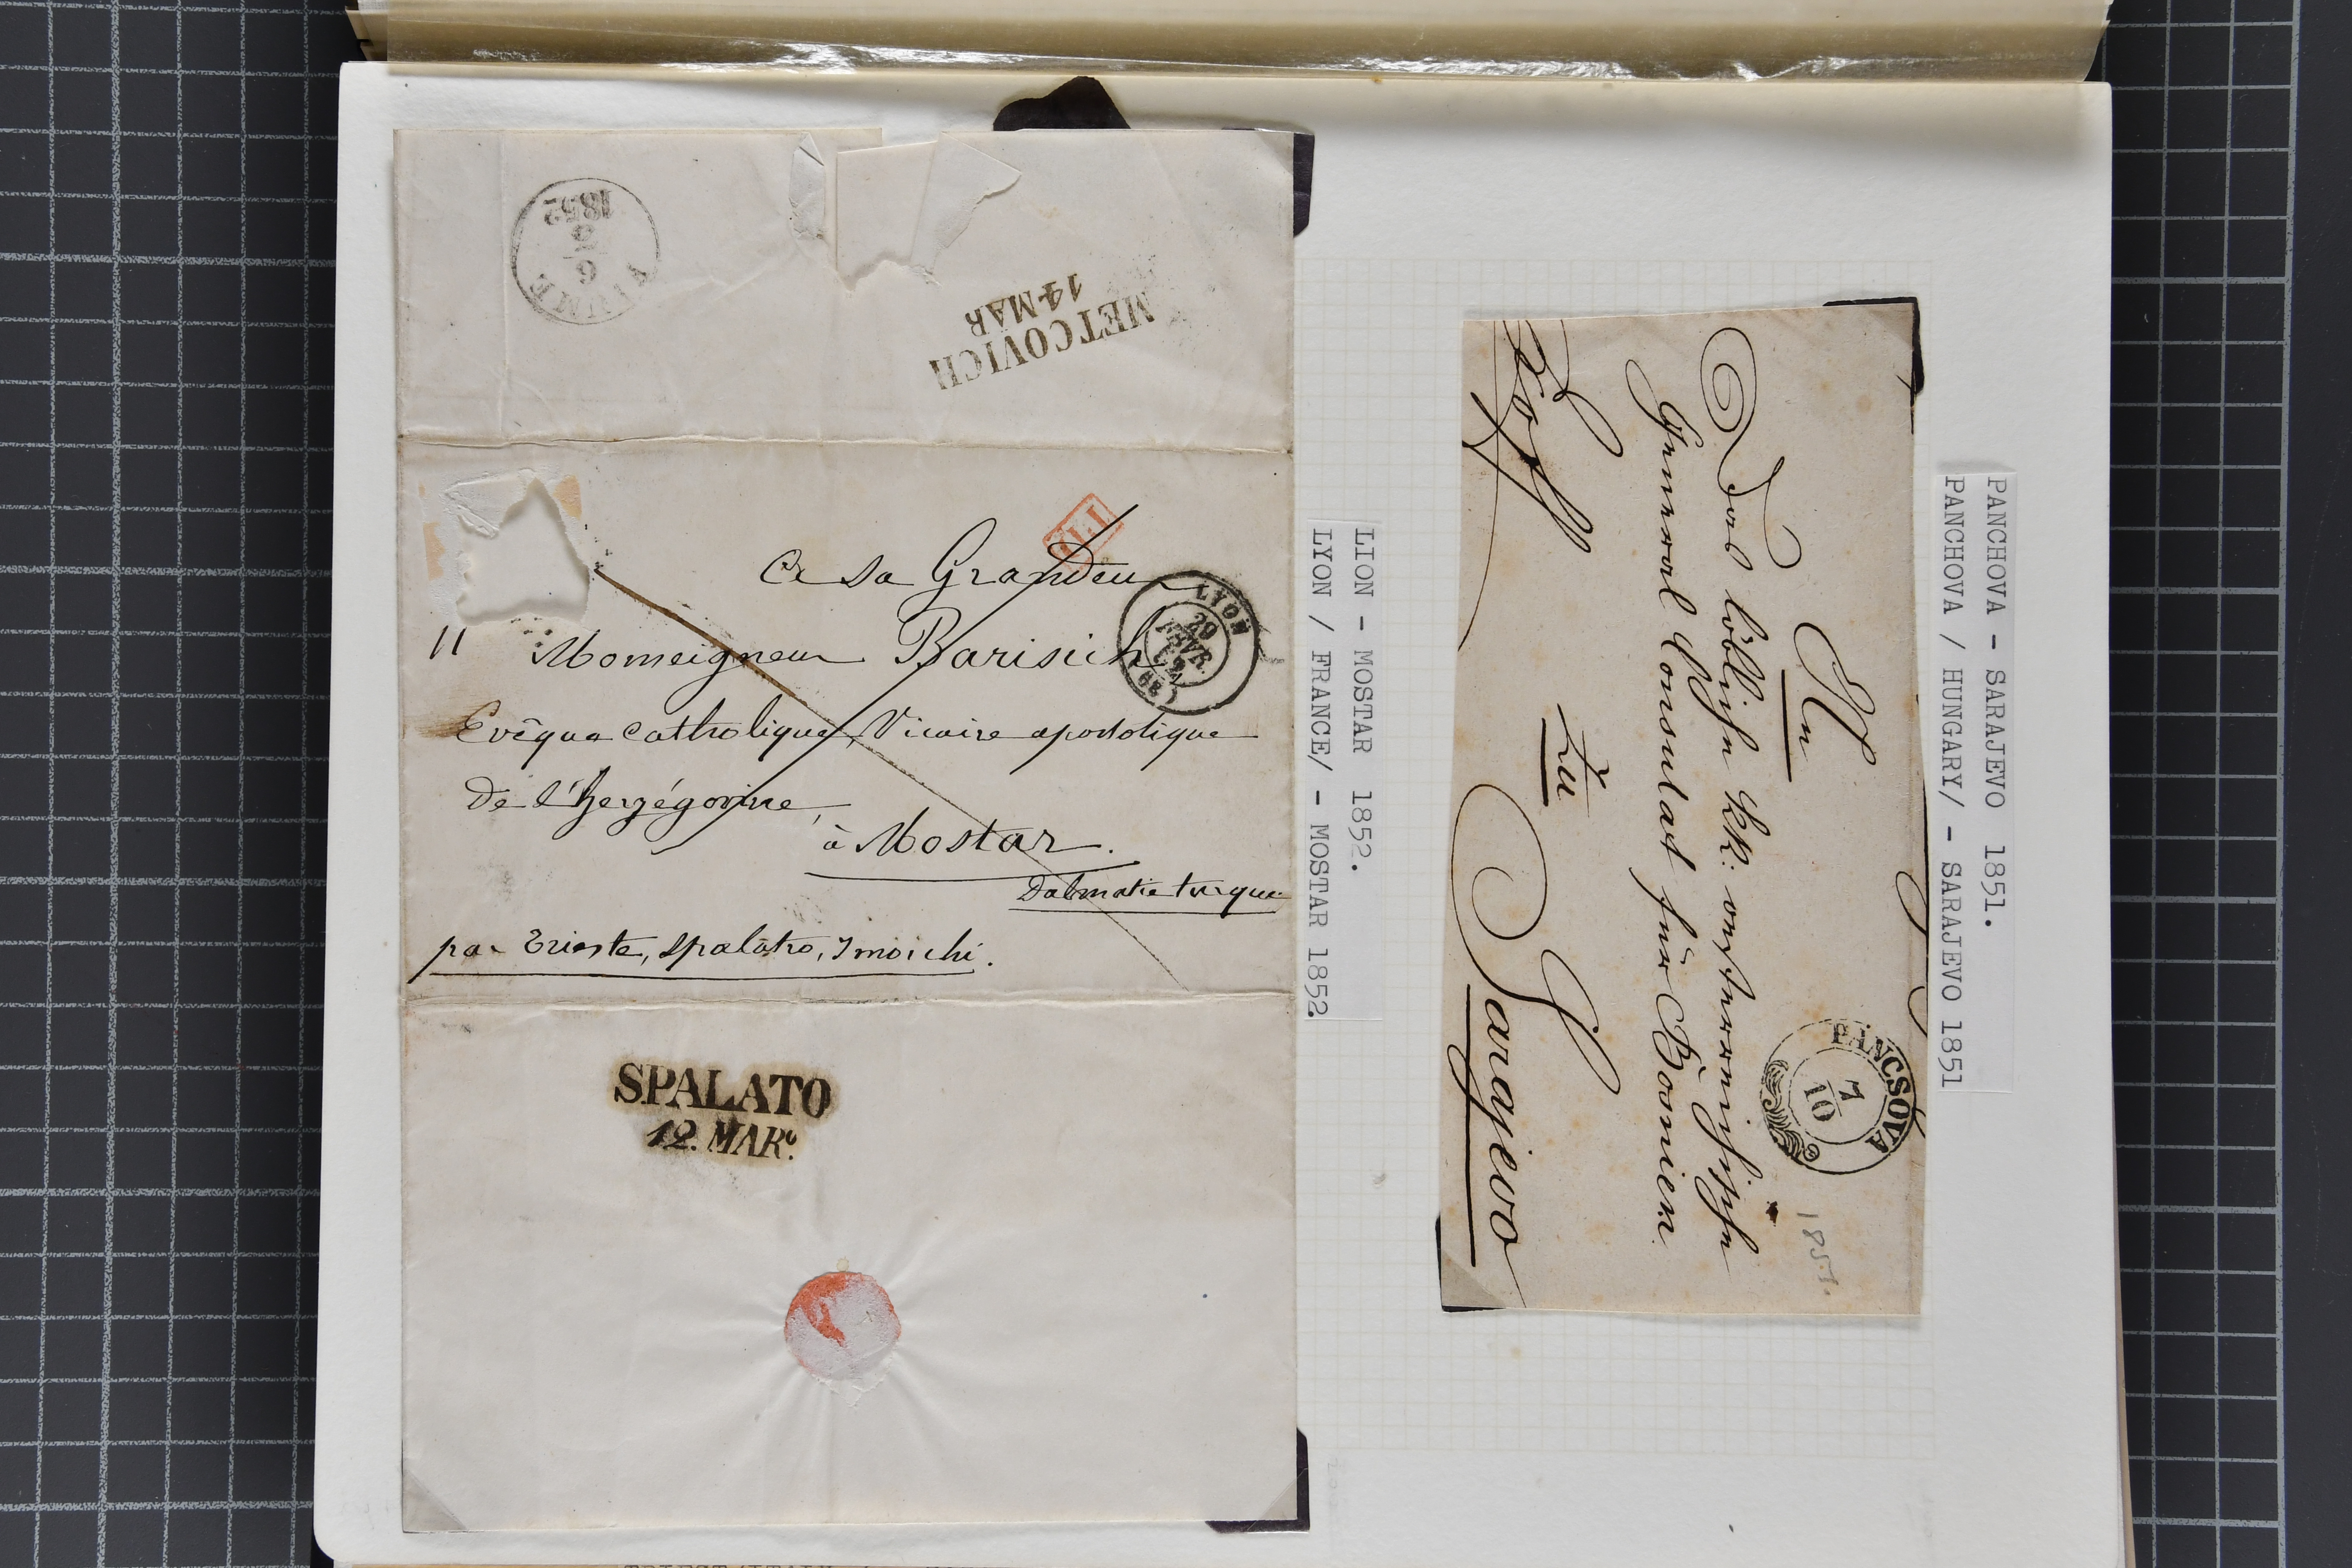 1852
6
FIUME
METCOVICH
14 MAR
P.P.
A Sa Grandeur
Monseigneur Barisich
Evêque catholique, Vicaire apostolique
de l'herzégovine,
à Mostar.
Dalmatie turque
par Trieste, Spalatro, Imoschi.
LYON
29
FEVR.
52
(68)
SPALATO
12. MARº.
LION - MOSTAR 1852.
LYON / FRANCE/ - MOSTAR 1852.
PANCHOVA - SARAJEVO 1851.
PANCHOVA / HUNGARY/ - SARAJEVO 1851
PANCSOVA
7
10
1851.
An
Das löbliche kk: oesterreichische
General Consulat für Bosnien.
zu
Sarajevo